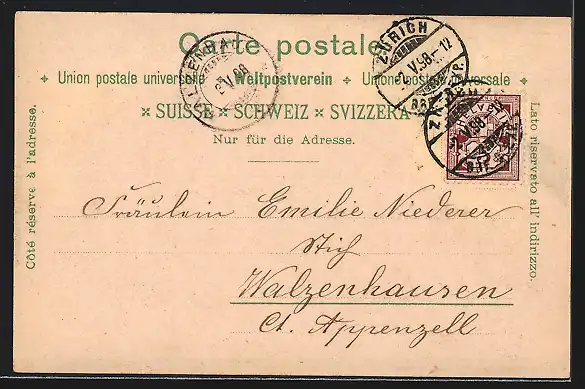 Carte postale.
Union postale universelle ✦ Weltpostverein ✦ Unione postale universale
× SUISSE × SCHWEIZ × SVIZZERA ×
Nur für die Adresse.
Côté réservé à l'adresse.
Lato riservato all' indirizzo.
ZÜRICH
2.V.98.-12
Fräulein Emilie Niederer
Stich
Walzenhausen
Ct. Appenzell